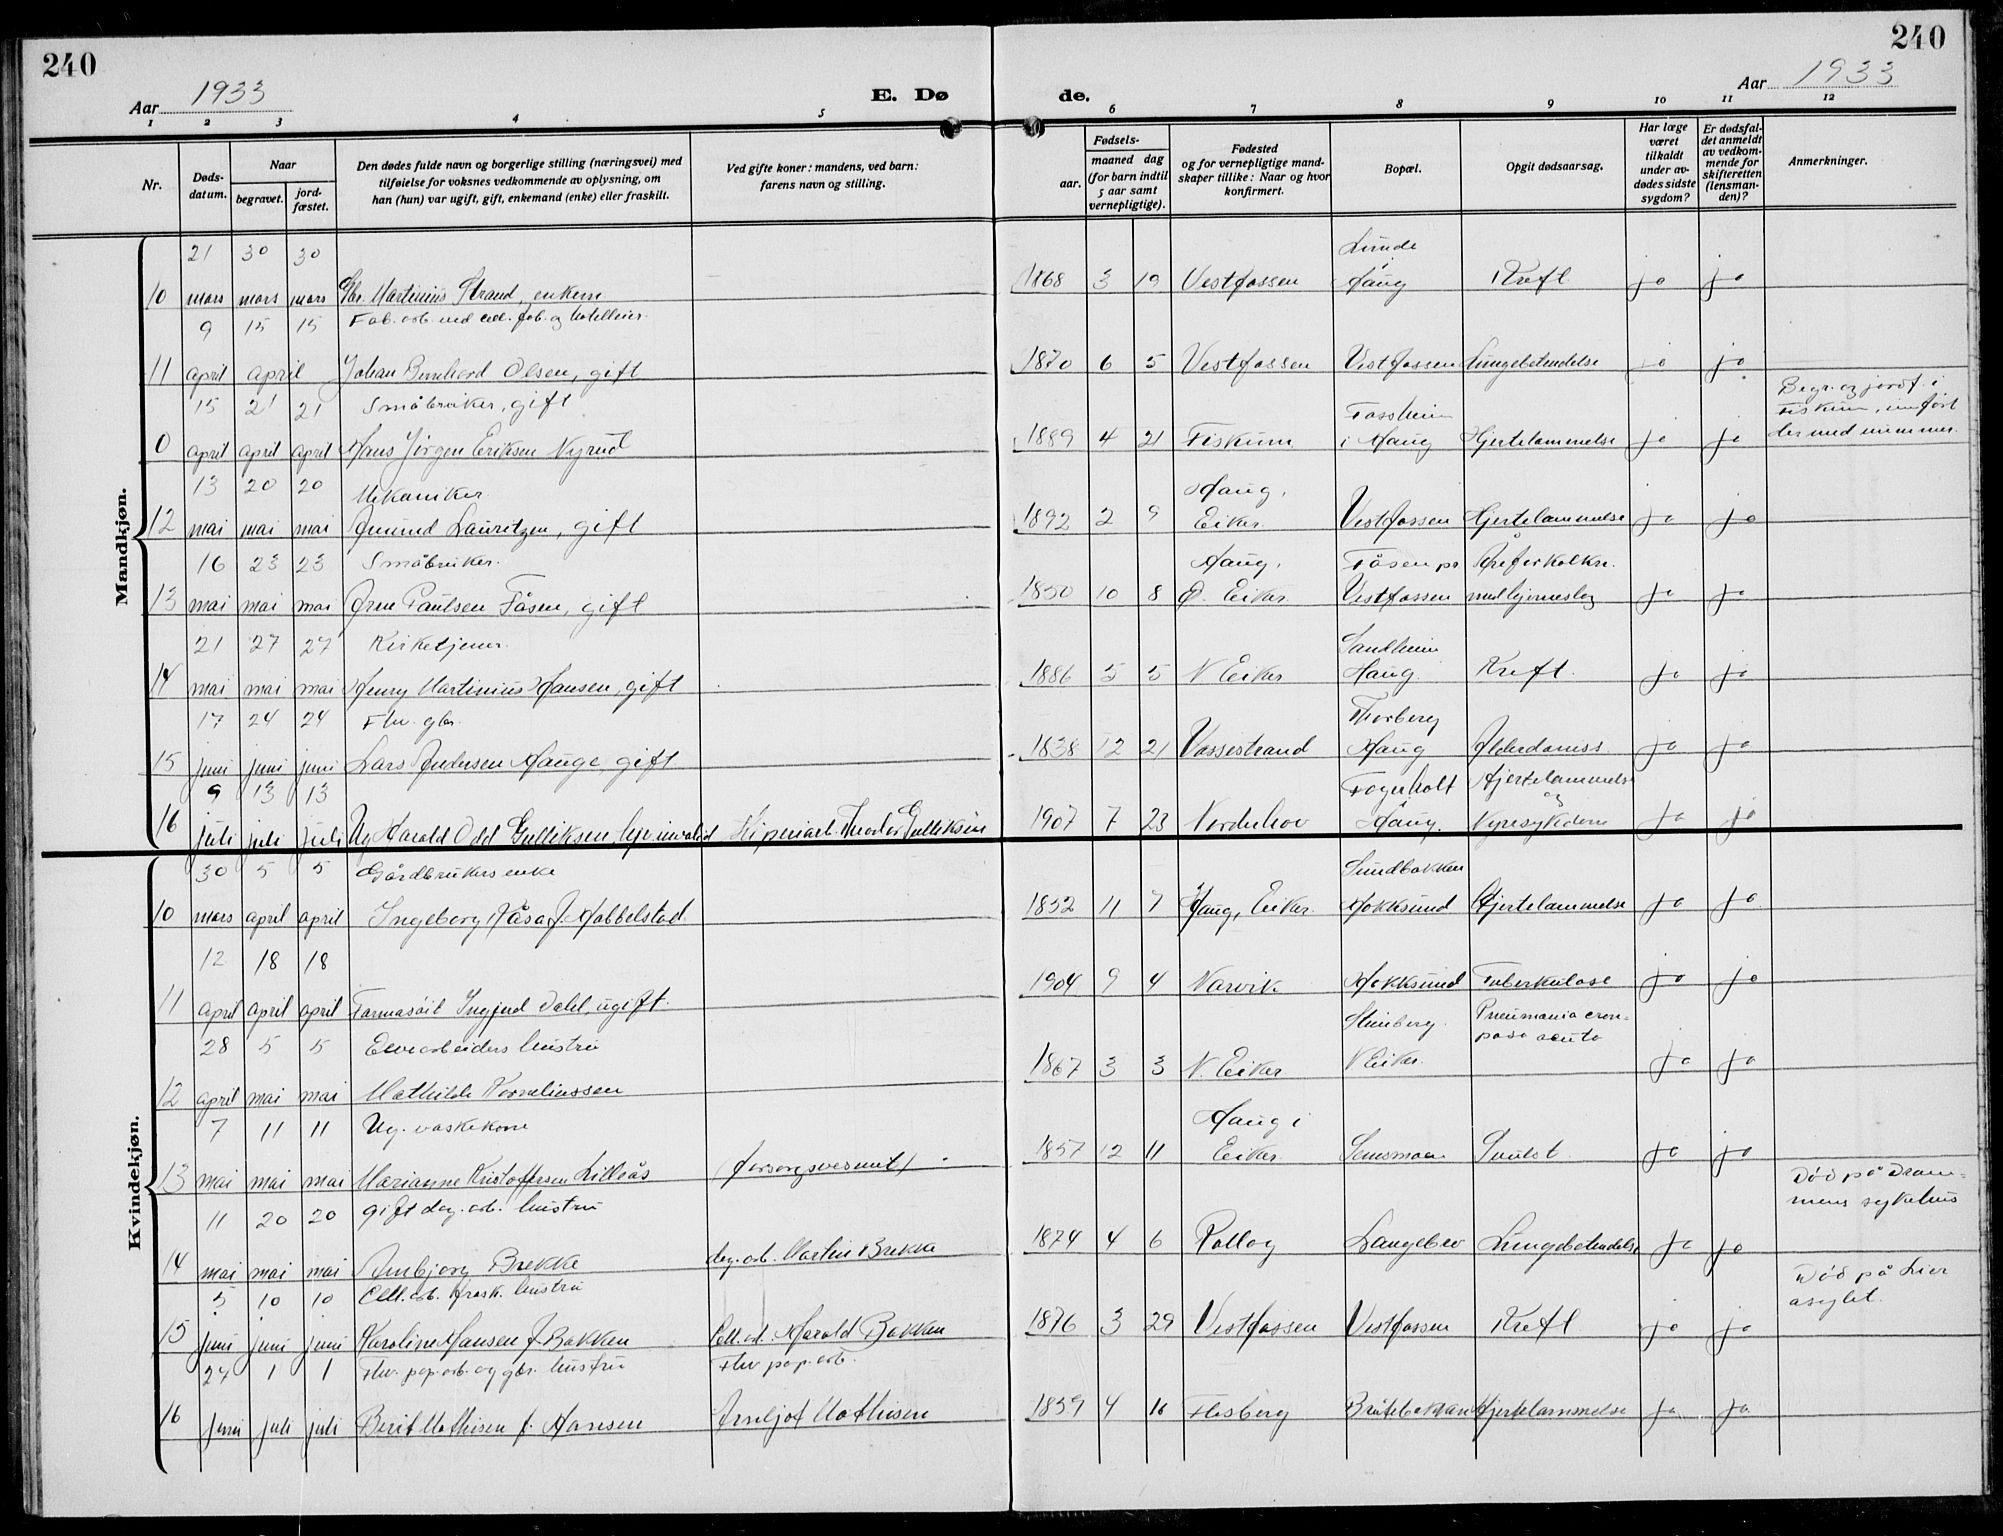 240
240
Aar 1933
E. Dø
de.
Aar 1933
1 2 3 4 5 6 7 8 9 10 11 12
Nr.
Døds-
datum.
Naar
begravet.
jord-
fæstet.
Den dødes fulde navn og borgerlige stilling (næringsvei) med
tilføielse for voksnes vedkommende av oplysning, om
han (hun) var ugift, gift, enkemand (enke) eller fraskilt.
Ved gifte koner: mandens, ved barn:
farens navn og stilling.
Fødsels-
aar.
maaned dag
(for barn indtil
5 aar samt
vernepligtige).
Fødested
og for vernepligtige mand-
skaper tillike: Naar og hvor
konfirmert.
Bopæl.
Opgit dødsaarsag.
Har læge
været
tilkaldt
under av-
dødes sidste
sygdom?
Er dødsfal-
det anmeldt
av vedkom-
mende for
skifteretten
(lensman-
den)?
Anmerkninger.
Mandkjøn.
21 30 30 Lunde
10 mars mars mars Martinius Strand, enkem 1868 3 19 Vestfossen Haug Kreft ja ja
9 15 15 Fab. arb. ved cell. fab. og hotelleier.
11 april april Johan Bernhard Olsen, gift 1870 6 5 Vestfossen Vestfossen Lungebetendelse ja ja
15 21 21 Småbruker, gift Fossheim Begr. og jordf. i
Fiskum, innført
0 april april april Hans Jørgen Eriksen Nyrud 1889 4 21 Fiskum i Haug Hjertelammelse ja ja der med nummer.
13 20 20 Mekaniker Haug,
12 mai mai mai Ømund Lauritzen, gift 1892 2 9 Eiker Vestfossen Hjertelammelse ja ja
16 23 23 Småbruker. Haug, Fåsen pr Åreforkalkn.
13 mai mai mai Øren Paulsen Fåsen, gift 1850 10 8 Ø. Eiker Vestfossen med hjerneslag ja ja
21 27 27 Kirketjener. Sandheim
14 mai mai mai Henry Martinius Hansen, gift 1886 5 5 N. Eiker Haug. Kreft. ja ja
17 24 24 Fhv. gbr. Thorberg
15 juni juni juni Lars Andersen Hauge, gift 1838 12 21 Vossestrand Haug Alderdomss. ja ja
9 13 13 Fagerholt Hjertelammelse
og
16 juli juli juli Ug. Harald Odd Gulliksen, hj. invalid Theodor Gulliksen 1907 7 23 Norderhov Haug. Nyresykdom ja ja
Kvindekjøn.
30 5 5 Gårdbrukers enke Sundbakken
10 mars april april Ingeborg Åsa f. Hobbelstad 1852 11 7 Haug, Eiker. Hokksund Hjertelammelse ja ja
12 18 18
11 april april april Farmasøit Ingjerd Dahl, ugift. 1904 9 4 Narvik Hokksund Tuberkulose ja ja
28 5 5 Elvearbeiders hustru Steinberg. Pneumonia crou-
posa acuta
12 april mai mai Mathilde Korneliussen 1867 3 3 N. Eiker N Eiker. ja ja
7 11 11 Ug. vaskekone Haug i
13 mai mai mai Marianne Kristoffersen Lilleås (forsorgsvesenet) 1857 12 11 Eiker. Semsmoen ja ja
11 20 20 gift dag. arb. hustru Død på Dram-
mens sykehus
14 mai mai mai Anbjørg Brekke dag. arb. Martin Brekke 1874 4 6 Rollag Langebro Lungebetendelse ja ja
5 10 10 Cell. arb. hustru Død på Lier
asylet.
15 juni juni juni Karoline Hansen f. Bakken Cell. arb. Harald Bakken 1876 3 29 Vestfossen Vestfossen Kreft ja ja
24 1 1 Fhv. pap. arb. og gbr. hustru Fhv pap. arb.
16 juni juli juli Berit Mathisen f. Hansen Mathisen 1859 4 16 Flesberg Bråtebakken Hjertelammelse ja ja